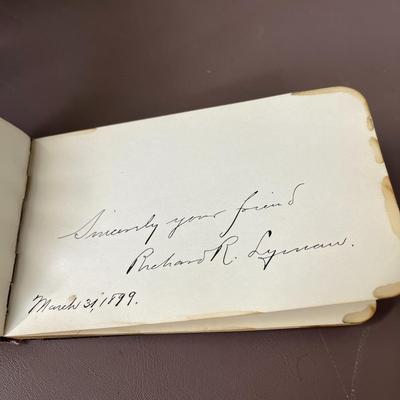 Sincerely your friend
Richard R. Lyman.
March 31, 1899.